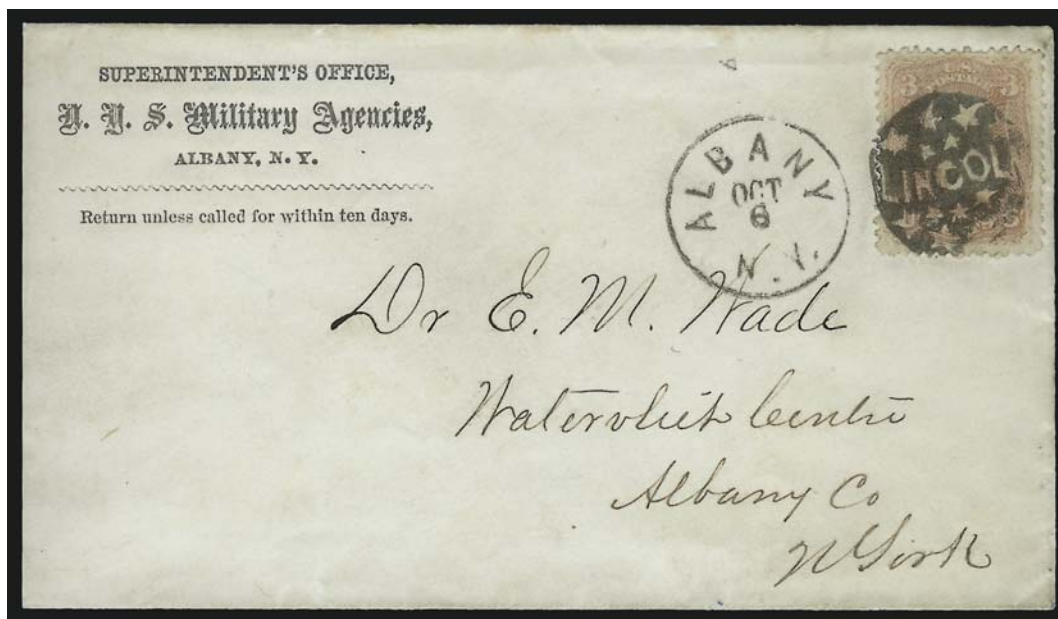 SUPERINTENDENT'S OFFICE,
N. Y. S. Military Agencies,
ALBANY, N. Y.
Return unless called for within ten days.
ALBANY
OCT
6
N.Y.
U.S.
3 3
LINCOL
Dr E. M. Wade
Watervliet Centre
Albany Co
N York